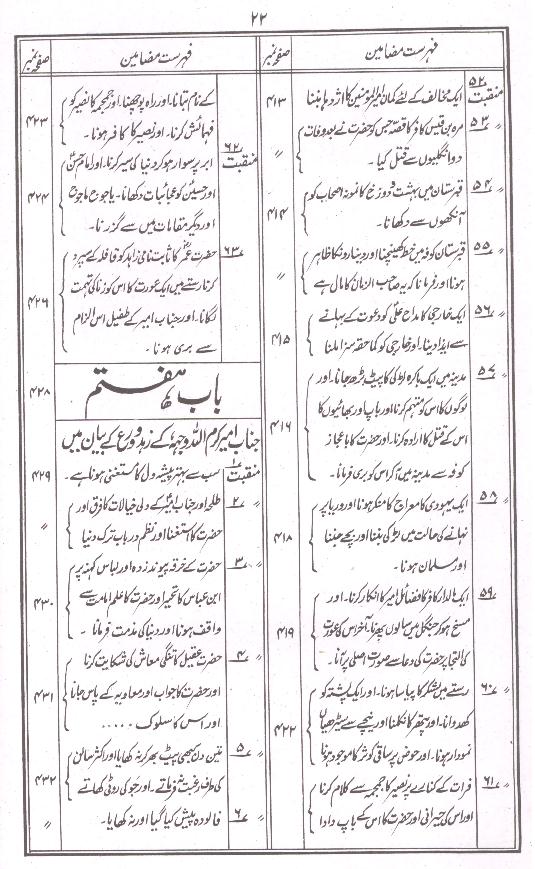 ۲۲
فہرست مضامین
صفحہ نمبر
منقبت ۵۲
ایک مخالف کے لئے کمان امیرالمومنین کا اژدہا بننا
۴۱۳
〃 ۵۳
مرہ بن قیس کافر کا قصہ جس کو حضرت نے بعد وفات
دو انگلیوں سے قتل کیا۔
〃
〃 ۵۴
قبرستان میں بہشت و دوزخ کا نمونہ اصحاب کو
آنکھوں سے دکھانا۔
۴۱۴
〃 ۵۵
قبرستان کوفہ میں خط کھینچنا اور دینارونکا ظاہر
ہونا اور فرمانا کہ یہ صاحب الزمان کا مال ہے
〃
〃 ۵۶
ایک خارجی کا مداح علیؑ کو دعوت کے بہانے
سے ایذا دینا۔ اور خارجی کو کما حقہ سزا ملنا
۴۱۵
〃 ۵۷
مدینہ میں ایک باکرہ لڑکی کا پیٹ بڑھ جانا۔ اور
لوگوں کا اس کو متہم کرنا اور باپ اور بھائیوں کا
اس کے قتل کا ارادہ کرنا۔ اور حضرت کا باعجاز
کوفہ سے مدینہ میں آکر اس کو بری فرمانا۔
۴۱۶
〃 ۵۸
ایک یہودی کا معراج کا منکر ہونا اور دریا پر
نہانے کی حالت میں لڑکی بننا اور بچے جننا
اور مسلمان ہونا۔
۴۱۸
〃 ۵۹
ایک مالدار کافر کا فضائل امیر کا انکار کرنا۔ اور
مسخ ہو کر جنگل میں سالوں پھرنا۔ آخر اس کی عورت
کی التجا پر حضرت کی دعا سے صورت اصلی پر آنا۔
۴۱۹
〃 ۶۰
رستے میں لشکر کا پیاسا ہونا۔ اور ایک پشتہ کو
کھدوانا۔ اور پتھر کا نکلنا اور نیچے سے سیڑھیاں
نمودار ہونا۔ اور حوض پر ساقی کوثر کا موجود ہونا
۴۲۲
〃 ۶۱
فرات کے کنارے پر نصیر کا جمجمہ سے کلام کرنا
اور اس کی حیرانی اور حضرت کا اس کے باپ دادا
فہرست مضامین
صفحہ نمبر
کے نام بتانا۔ اور راہ پوچھنا۔ اور جمجمہ کا نصیر کو
فہمائش کرنا۔ اور نصیر کا کافر ہونا۔
۴۲۳
منقبت ۶۲
ابر پر سوار ہو کر دنیا کی سیر کرنا۔ اور امام حسنؑ
اور حسینؑ کو عجائبات دکھانا۔ یاجوج ماجوج
اور دیگر مقامات میں سے گزرنا۔
۴۲۴
〃 ۶۳
حضرت عمرؓ کا ثابت نامی زاہد کو قافلہ کے سپرد
کرنا رستے میں ایک عورت کا اس کو زنا کی تہمت
لگانا۔ اور جناب امیر کے طفیل اس الزام
سے بری ہونا۔
۴۲۶
باب ہفتم
۴۲۸
جناب امیر کرم اللہ وجہہ کے زہد و ورع کے بیان میں
منقبت ۱
سب سے بہتر پیشہ دل کا مستغنی ہونا ہے۔
۴۲۹
〃 ۲
طلحہ اور جناب امیرؑ کے دلی خیالات کا فرق اور
حضرت کا استغنا اور نظم در باب ترک دنیا
〃
〃 ۳
حضرت کے خرقہ پیوند زدہ اور لباس کہنہ پر
ابن عباس کا تحیر اور حضرت کا علم امامت سے
واقف ہونا اور دنیا کی مذمت فرمانا۔
۴۳۰
〃 ۴
حضرت عقیل کا تنگی معاش کی شکایت کرنا
اور حضرت کا جواب اور معاویہ کے پاس جانا
اور اس کا سلوک .....
۴۳۱
〃 ۵
تین دن کبھی پیٹ بھر کر نہ کھایا اور اکثر سالن
کی طرف رغبت نہ فرماتے۔ اور جو کی روٹی کھاتے
۴۳۲
〃 ۶
فالودہ پیش کیا گیا اور نہ کھایا۔
〃